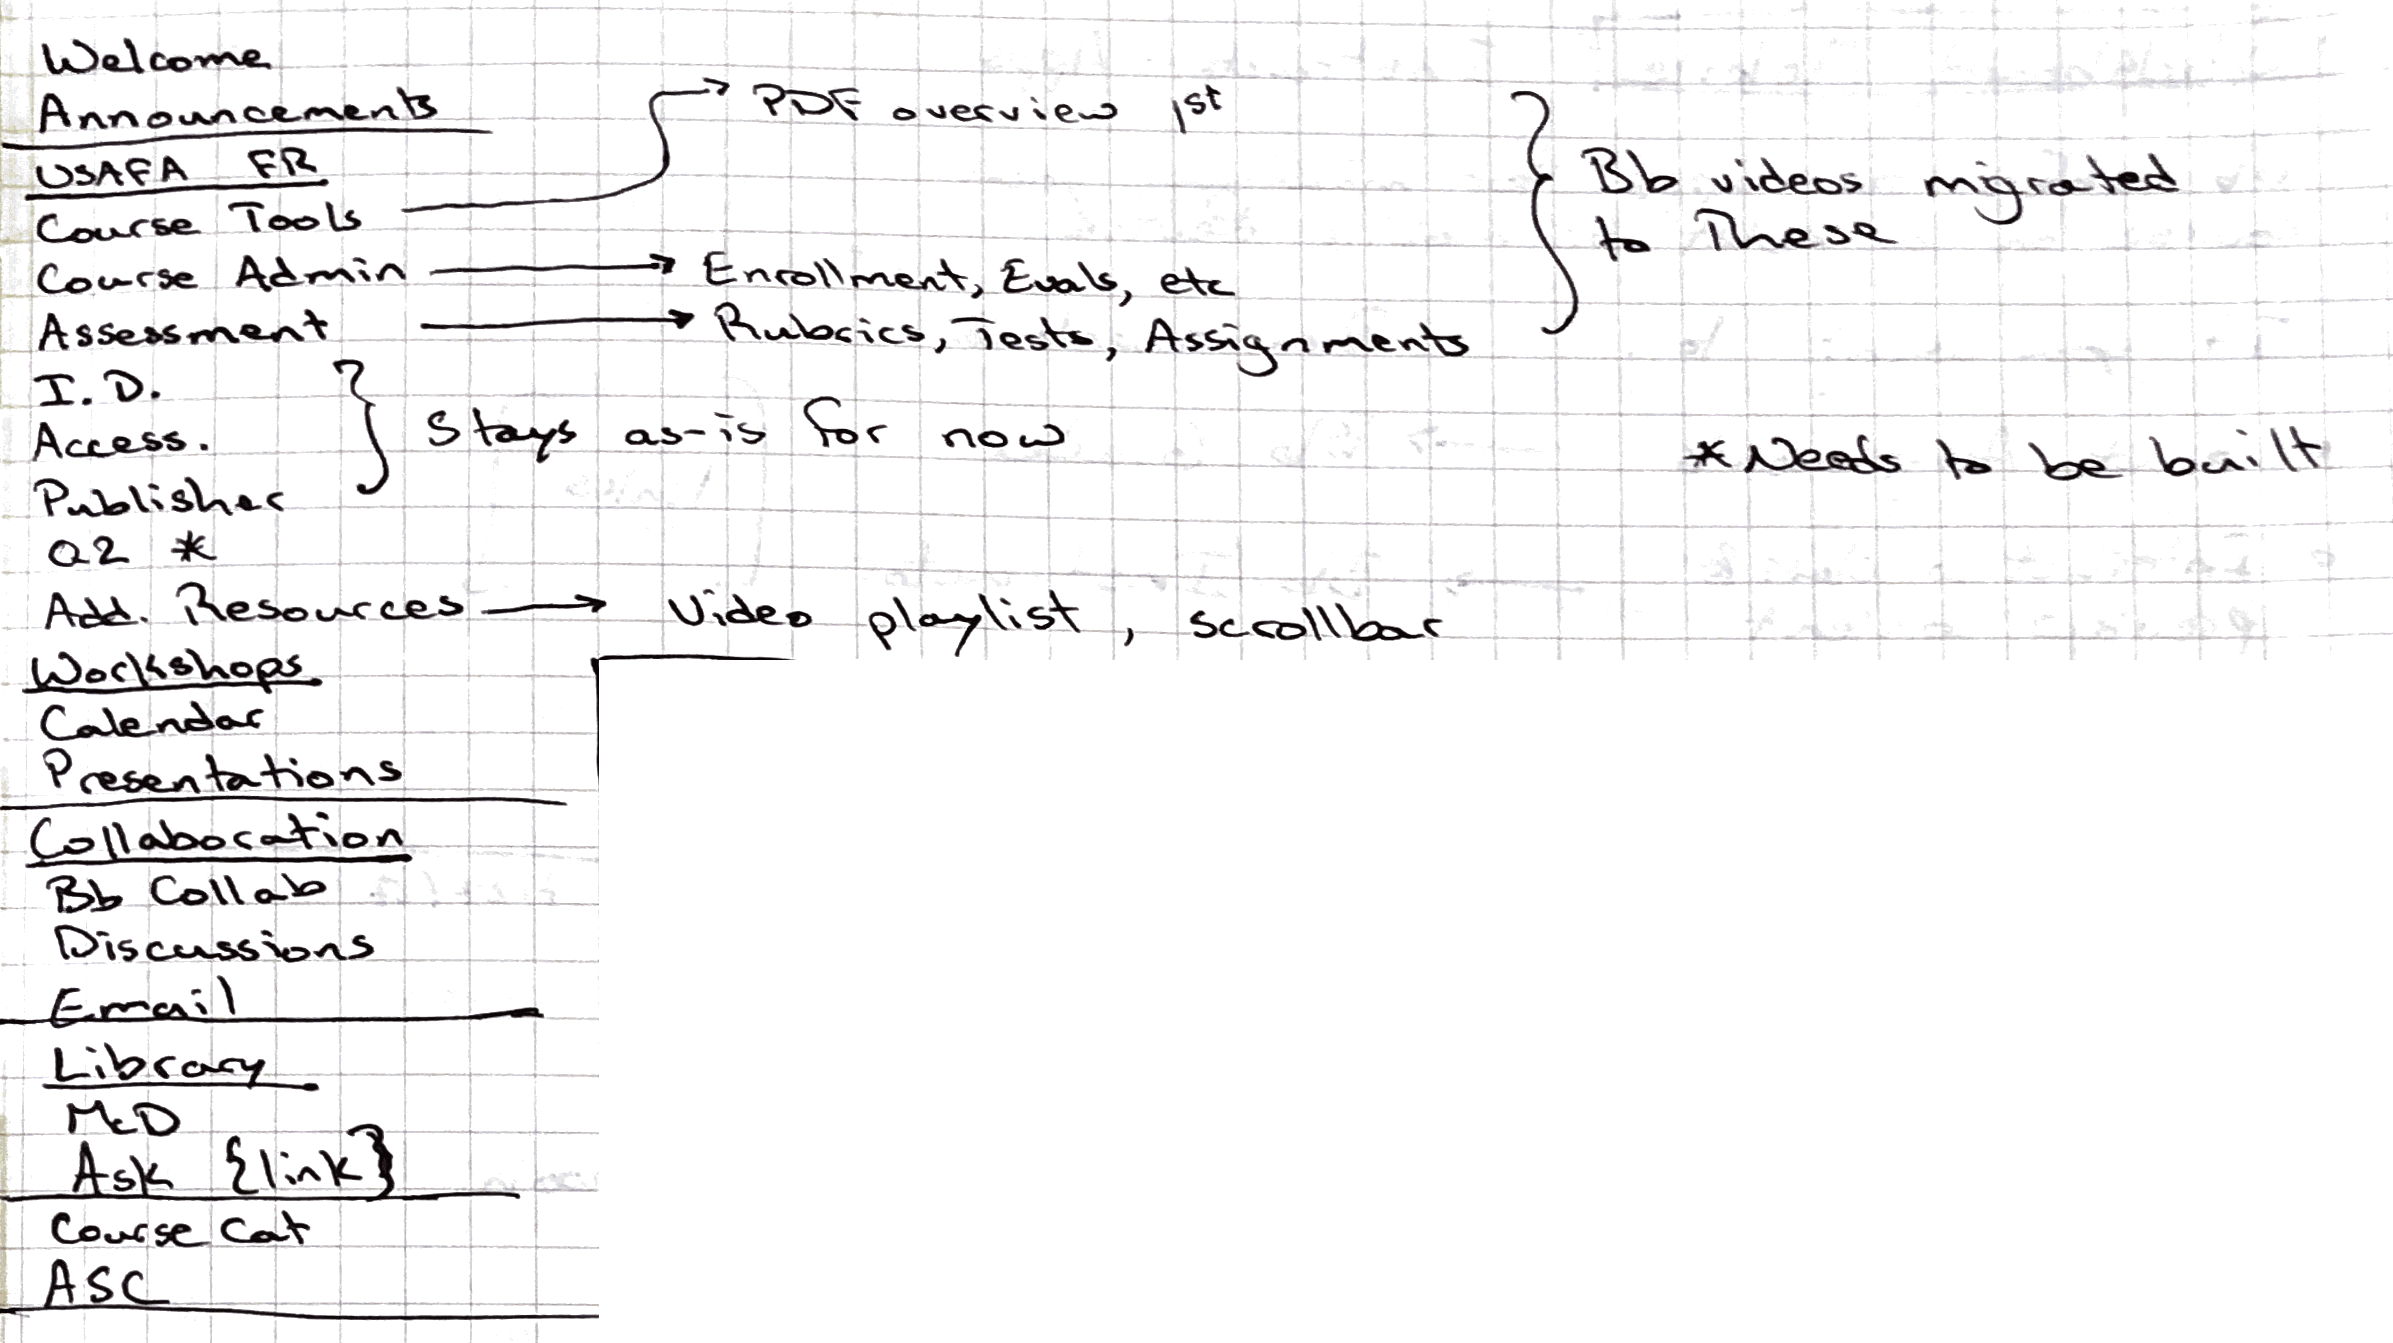 Welcome
Announcements
USAFA FR
Course Tools → PDF overview 1st
Course Admin → Enrollment, Evals, etc
Assessment → Rubrics, Tests, Assignments
} Bb videos migrated
to These
I.D.
Access.
Publisher
} Stays as-is for now
*Needs to be built
Q2 *
Add. Resources → Video playlist, scrollbar
Workshops
Calendar
Presentations
Collaboration
Bb Collab
Discussions
Email
Library
McD
Ask {link}
Course Cat
ASC